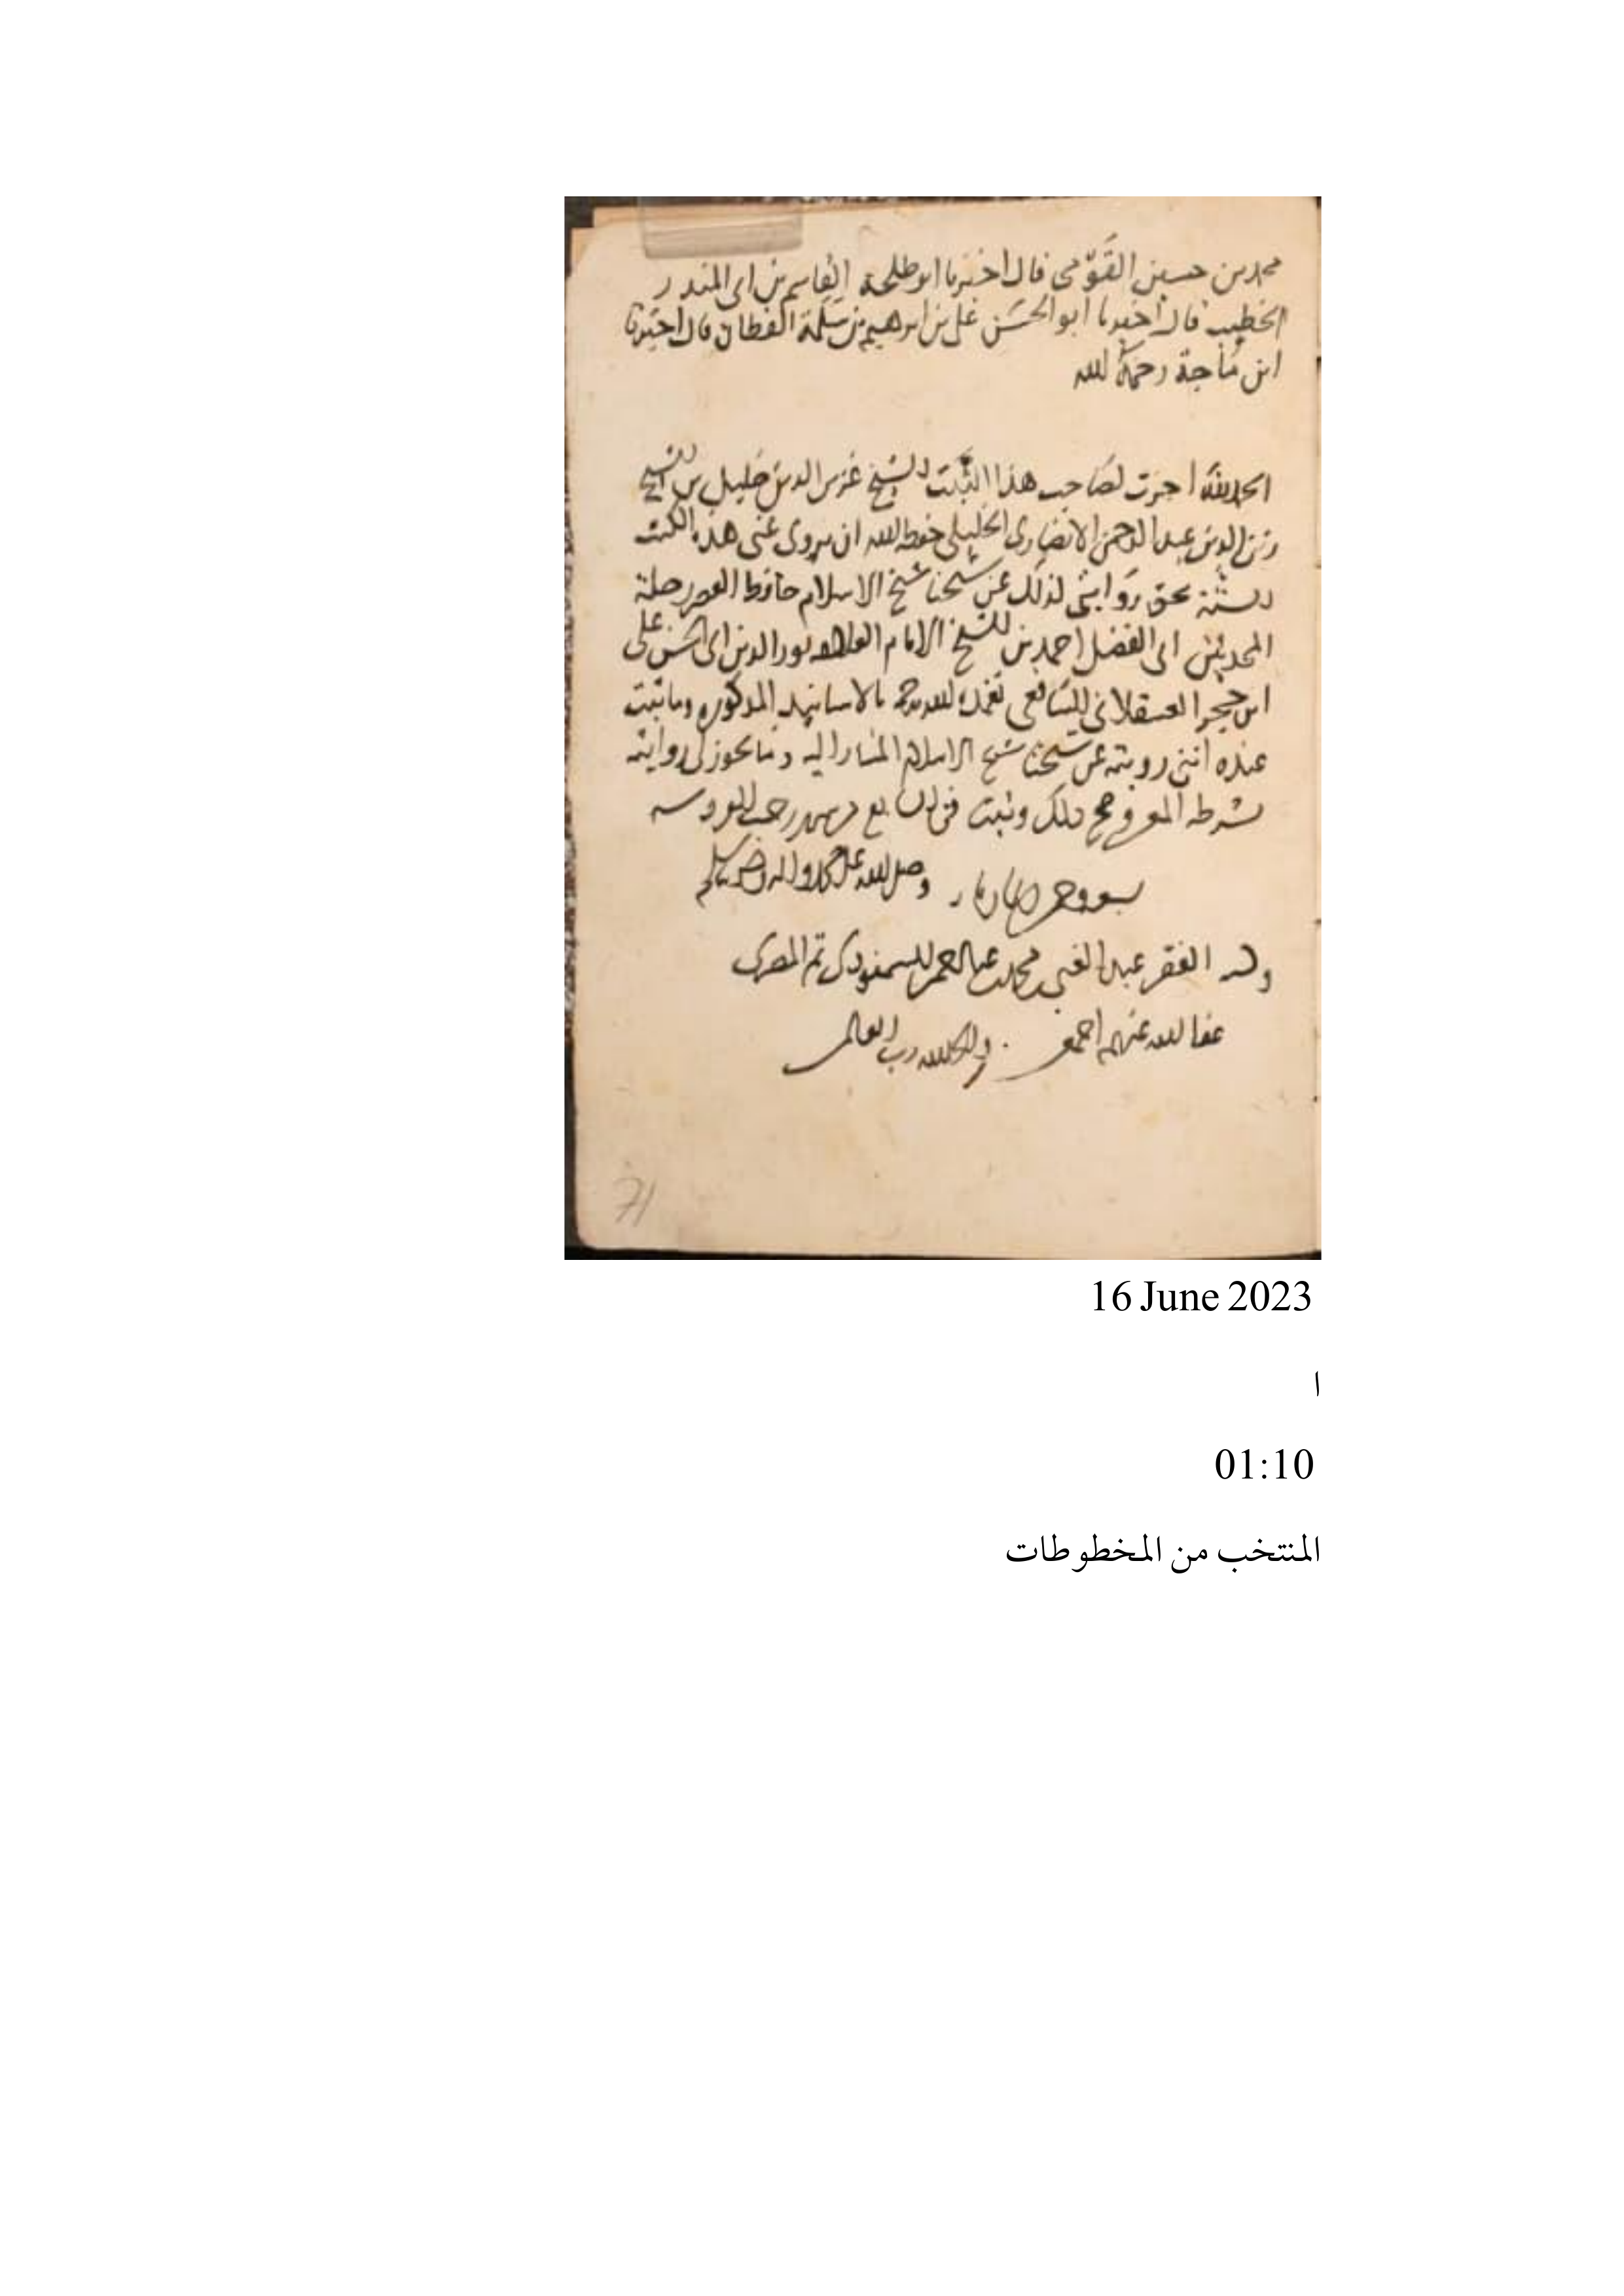 محمد بن حسين القَوّمى قال اخبرنا ابو طلحة القاسم بن ابى المنذر
الخطيب قال اخبرنا ابو الحسَن على بن ابرهيم بن سَلَمة القطان قال اخبرنا
ابن مَاجة رحمَهُ الله
الحمد لله اجزت لصَاحب هذا الثَّبَت الشيخ غرس الدين خليل بن الشيخ
زين الدين عبد الرحمن الانصَارى الخليلى حفظه الله ان يروى عنى هذه الكتب
الستّة بحق رِوَايتى لذلك عن شيخنا شيخ الاسلام حافظ العصر رحلة
المحدثين ابى الفضل احمد بن الشيخ الامام العلامه نور الدين ابى الحسن على
ابن حجر العسقلانى الشافعى تغمده الله برحمته بالاسانيد المذكوره وما ثبت
عنده اننى رويته عن شيخنا شيخ الاسلام المشار اليه وما يجوز لى روايته
بشرطه المعروف صح ذلك وثبت فى شهر رجب الفرد سنه
وصلى الله على محمد واله وصحبه وسلم
وكتبه الفقير عبد الغنى بن محمد بن عبد الرحمن السمنودى ثم المصرى
عفا الله عنهم اجمعين والحمد لله رب العالمين
71
16 June 2023
ا
01:10
المنتخب من المخطوطات